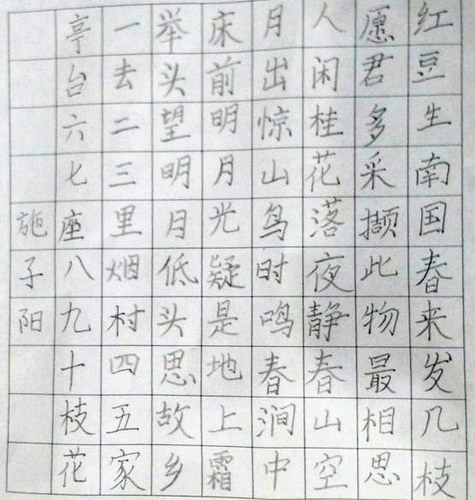 红豆生南国春来发几枝
愿君多采撷此物最相思
人闲桂花落夜静春山空
月出惊山鸟时鸣春涧中
床前明月光疑是地上霜
举头望明月低头思故乡
一去二三里烟村四五家
亭台六七座八九十枝花
施子阳